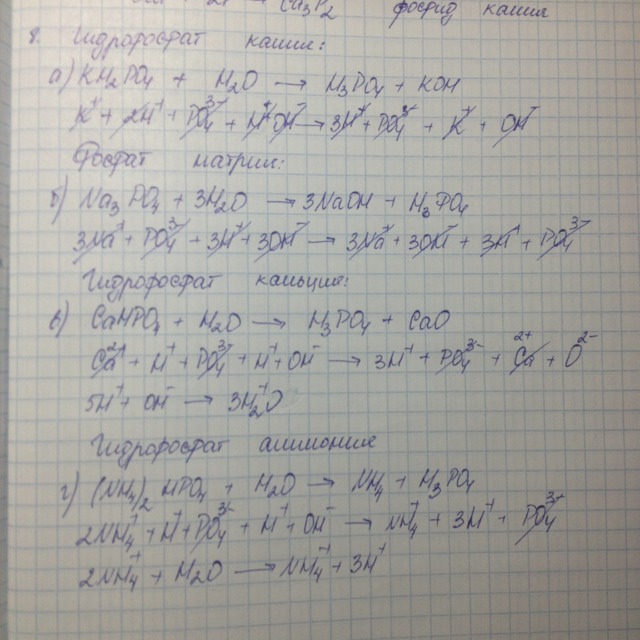 Ca3P2 фосфид калия
8. Гидрофосфат калия:
а) KH2PO4 + H2O → H3PO4 + KOH
K+ + 2H+ + PO4 3- + H+ OH- → 3H+ + PO4 3- + K+ + OH-
Фосфат натрия:
б) Na3PO4 + 3H2O → 3NaOH + H3PO4
3Na+ + PO4 3- + 3H+ + 3OH- → 3Na+ + 3OH- + 3H+ + PO4 3-
Гидрофосфат кальция:
в) CaHPO4 + H2O → H3PO4 + CaO
Ca2+ + H+ + PO4 3- + H+ + OH- → 3H+ + PO4 3- + Ca 2+ + O 2-
5H+ + OH- → 3H2O
Гидрофосфат аммония
г) (NH4)2HPO4 + H2O → NH4 + H3PO4
2NH4+ + H+ + PO4 3- + H+ + OH- → NH4+ + 3H+ + PO4 3-
2NH4+ + H2O → NH4+ + 3H+